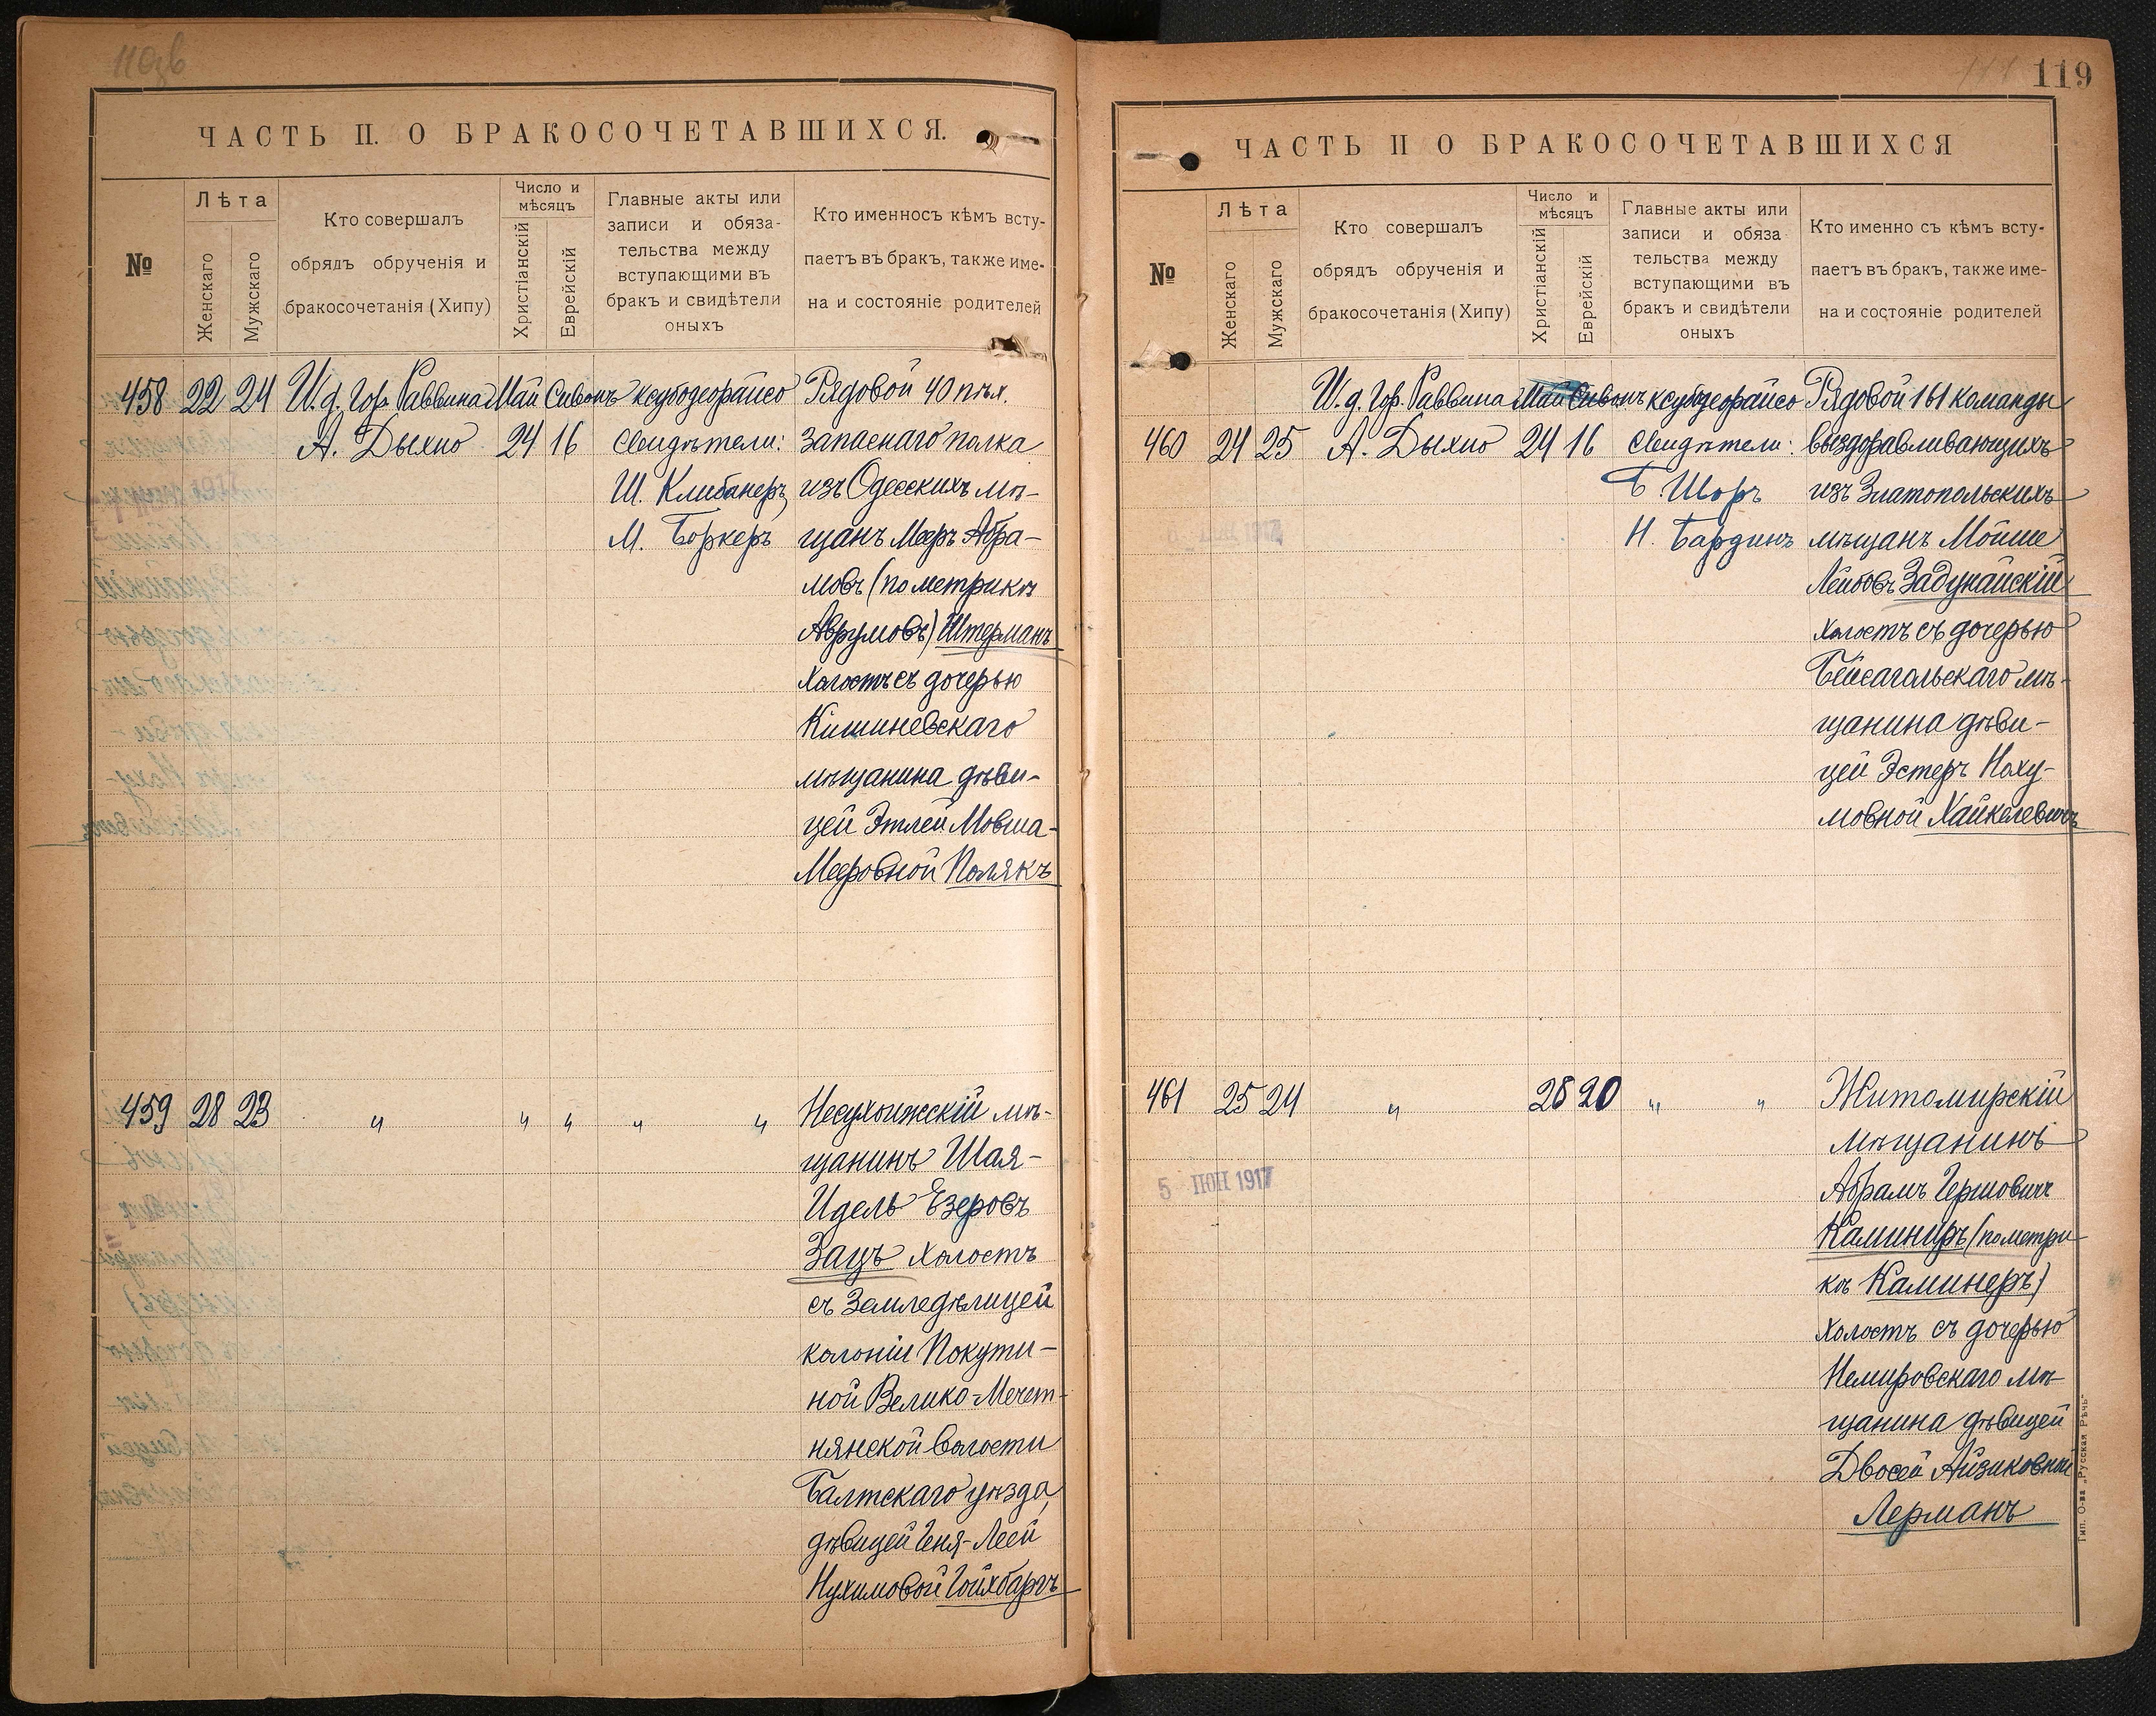 ЧАСТЬ II. О БРАКОСОЧЕТАВШИХСЯ.
№
Лѣта
Женскаго
Мужскаго
Кто совершалъ
обрядъ обрученія и
бракосочетанія (Хипу)
Число и
мѣсяцъ
Христіанскій
Еврейскій
Главные акты или
записи и обяза-
тельства между
вступающими въ
бракъ и свидѣтели
оныхъ
Кто именносъ кѣмъ всту-
паетъ въ бракъ, также име-
на и состояніе родителей
458 22 24 И. д. Гор. Раввина Май Сивонъ ксубодеорайсо Рядовой 40 пѣх.
А. Дыхно 24 16 Свидѣтели: запаснаго полка
Ш. Клибанеръ, изъ Одесскихъ мѣ-
М. Боркеръ щанъ Мееръ Абра-
мовъ (по метрикѣ
Аврумовъ) Штерманъ
холостъ съ дочерью
Кишиневскаго
мѣщанина дѣви-
цей Этлей Мовша-
Мееровной Полякъ
459 28 23 " " " " " Несухоижскій мѣ-
щанинъ Шая-
Идель Езеровъ
Зацъ холостъ
съ Земледѣлицей
колоніи Покути-
ной Велико-Мечет-
нянской волости
Балтскаго уѣзда,
дѣвицей Геня-Леей
Нухимовой Гойхбаргъ
119
ЧАСТЬ II О БРАКОСОЧЕТАВШИХСЯ
№
Лѣта
Женскаго
Мужскаго
Кто совершалъ
обрядъ обрученія и
бракосочетанія (Хипу)
Число и
мѣсяцъ
Христіанскій
Еврейскій
Главные акты или
записи и обяза
тельства между
вступающими въ
бракъ и свидѣтели
оныхъ
Кто именно съ кѣмъ всту-
паетъ въ бракъ, также име-
на и состояніе родителей
И. д. Гор. Раввина Май Сивонъ ксубодеорайсо Рядовой 161 команды
460 24 25 А. Дыхно 24 16 Свидѣтели: выздоравливающихъ
Б. Шоръ изъ Златопольскихъ
Н. Бардинъ мѣщанъ Мойше
Лейбовъ Задунайскій
холостъ съ дочерью
Бейсагольскаго мѣ-
щанина дѣви-
цей Эстеръ Наху-
мовной Хайкелевичъ
461 25 24 " 28 20 " " Житомирскій
мѣщанинъ
5 ІЮН 1917
Абрамъ Гершовичъ
Каминиръ (по метри-
кѣ Каминеръ)
холостъ съ дочерью
Немировскаго мѣ-
щанина дѣвицей
Двосей Айзиковной
Лерманъ
Тип. О-ва „Русская Рѣчь"